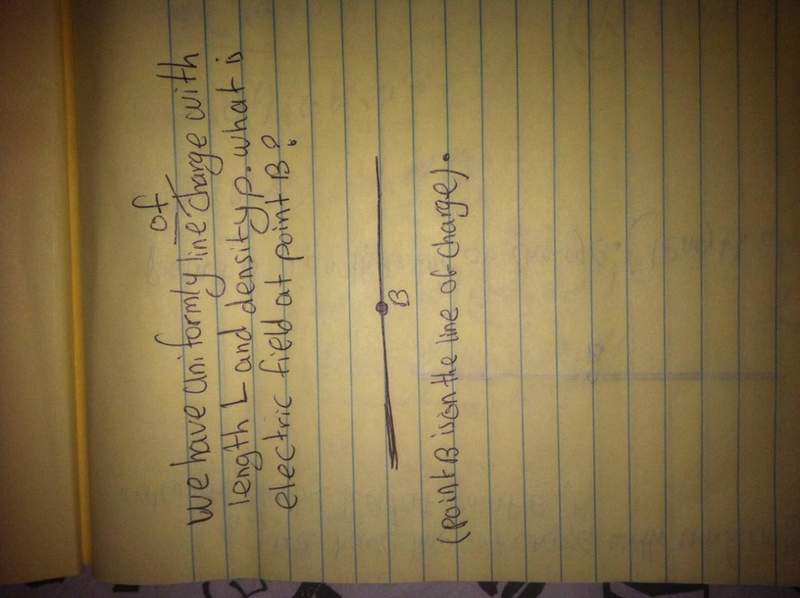 of
we have uniformly line charge with
length L and density ρ. what is
electric field at point B?
B
(point B is on the line of charge).